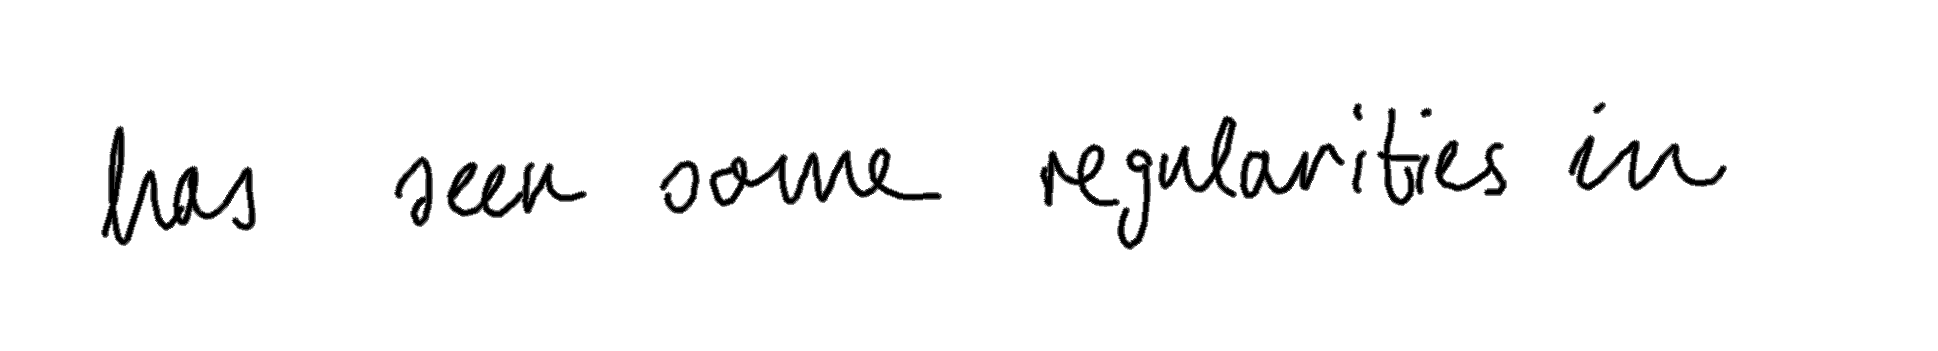 has seen some regularities in